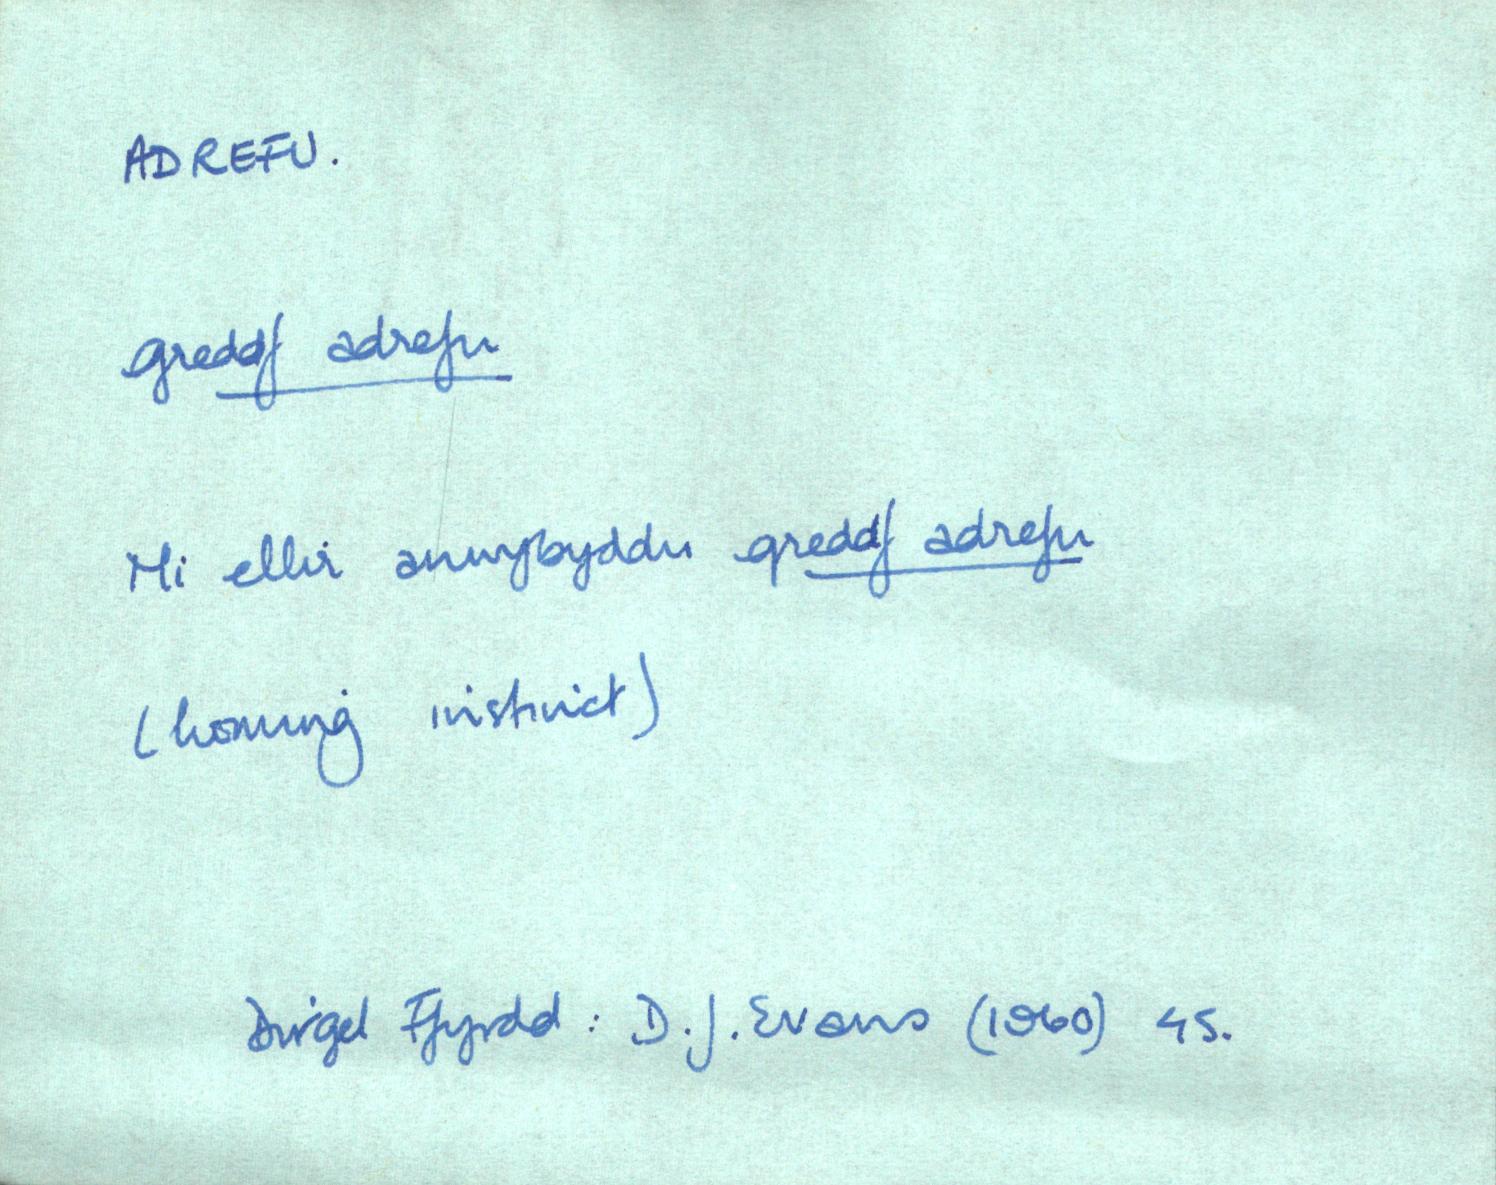 ADREFU.
greddf adrefu
Ni ellir anwybyddu greddf adrefu
(homing instinct)
Dirgel Ffyrdd : D.J. Evans (1960) 45.